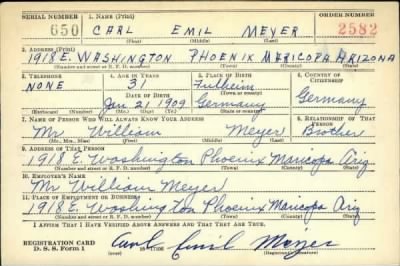 SERIAL NUMBER 1. NAME (Print) ORDER NUMBER
650 CARL EMIL MEYER 2582
(First) (Middle) (Last)
2. ADDRESS (Print)
1918 E. WASHINGTON PHOENIX MERICOPA ARIZONA
(Number and street or R. F. D. number) (Town) (County) (State)
3. TELEPHONE 4. AGE IN YEARS 5. PLACE OF BIRTH 6. COUNTRY OF CITIZENSHIP
NONE 31 Fulheim Germany
DATE OF BIRTH (Town or county)
Jan 21 1909 Germany
(Exchange) (Number) (Mo.) (Day) (Yr.) (State or country)
7. NAME OF PERSON WHO WILL ALWAYS KNOW YOUR ADDRESS 8. RELATIONSHIP OF THAT PERSON
Mr William Meyer Brother
(Mr., Mrs., Miss) (First) (Middle) (Last)
9. ADDRESS OF THAT PERSON
1918 E. Washington Phoenix Maricopa Ariz
(Number and street or R. F. D. number) (Town) (County) (State)
10. EMPLOYER'S NAME
Mr William Meyer
11. PLACE OF EMPLOYMENT OR BUSINESS
1918 E. Washington Phoenix Maricopa Ariz
(Number and street or R. F. D. number) (Town) (County) (State)
I AFFIRM THAT I HAVE VERIFIED ABOVE ANSWERS AND THAT THEY ARE TRUE.
REGISTRATION CARD
D. S. S. Form 1 (over) Carl Emil Meyer
(Registrant's signature)